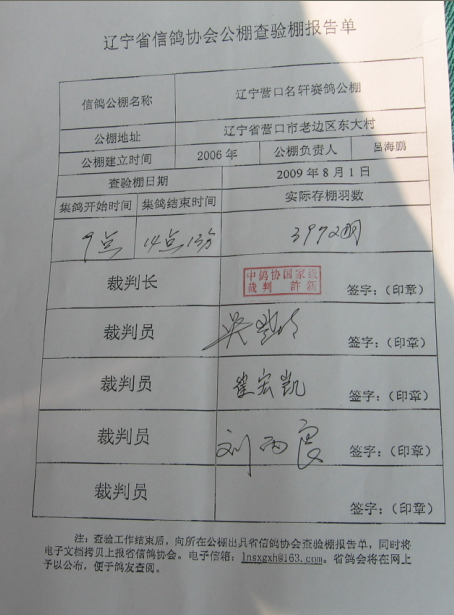 辽宁省信鸽协会公棚查验棚报告单
信鸽公棚名称 辽宁营口名轩赛鸽公棚
公棚地址 辽宁省营口市老边区东大村
公棚建立时间 2006 年 公棚负责人 吕海鹏
查验棚日期 2009 年 8 月 1 日
集鸽开始时间 集鸽结束时间 实际存棚羽数
9点 14点13分 3972羽
裁判长 中鸽协国家级
裁判 许新 签字:(印章)
裁判员 签字:(印章)
裁判员 崔宏凯 签字:(印章)
裁判员 刘丙良 签字:(印章)
裁判员 签字:(印章)
注:查验工作结束后,向所在公棚出具省信鸽协会查验棚报告单,同时将
电子文档拷贝上报省信鸽协会。电子信箱:lnsxgxh@163.com。省鸽会将在网上
予以公布,便于鸽友查阅。